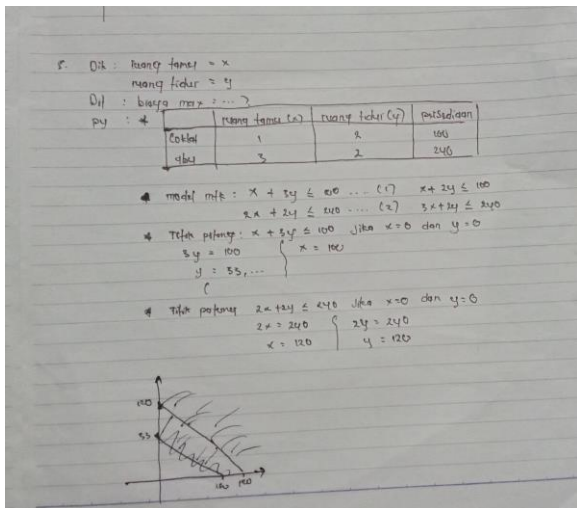 5. Dik : Ruang tamu = x
ruang tidur = y
Dit : biaya max : ... ?
py : * ruang tamu (x) ruang tidur (y) persediaan
Coklat 1 2 100
abu 3 2 240
* modal mtk : x + 3y ≤ 100 .... (1) x + 2y ≤ 100
2x + 2y ≤ 240 .... (2) 3x + 2y ≤ 240
* Titik potong : x + 3y ≤ 100 Jika x=0 dan y=0
3y = 100 x = 100
y = 33, ...
* Titik potong 2x + 2y ≤ 240 Jika x=0 dan y=0
2x = 240 2y = 240
x = 120 y = 120
120
33
100 120